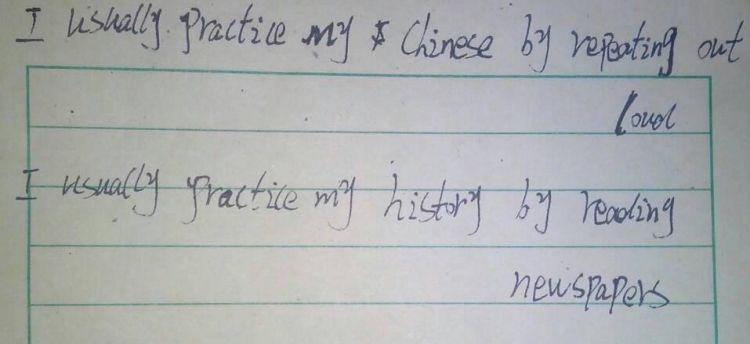 I usually practice my Chinese by repeating out
loud
I usually practice my history by reading
newspapers